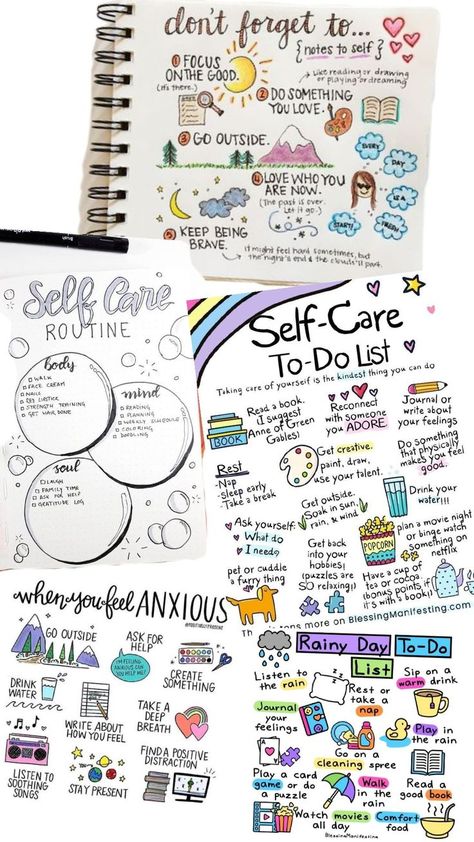 don't forget to...
{notes to self}
① FOCUS
ON THE GOOD.
(It's there.)
Like reading or drawing
or playing or dreaming
② DO SOMETHING
YOU LOVE.
③ GO OUTSIDE.
④ LOVE WHO YOU
ARE NOW.
(The past is over.
Let it go.)
EVERY
DAY
IS A
FRESH
START!
⑤ KEEP BEING
BRAVE.
It might feel hard sometimes, but
the night'll end & the clouds'll part.
Self Care
ROUTINE
body
WALK
FACE CREAM
NAILS
RED LIPSTICK
STRENGTH TRAINING
GET WAX DONE
mind
READING
PLANNING
WEEKLY SCHEDULE
COLORING
DOODLING
soul
LAUGH
FAMILY TIME
ASK FOR HELP
GRATITUDE LOG
Self-Care
To-Do List
Taking care of yourself is the kindest thing you can do
Read a book.
(I suggest
Anne of Green
Gables!)
BOOK
Reconnect
with someone
you ADORE
Journal or
write about
your feelings
Rest
-Nap
-Sleep early
-Take a break
Get creative.
paint, draw,
use your talent.
Do something
that physically
makes you feel
good.
Ask yourself:
What do
I need?
Get outside.
Soak in sun,
rain, & wind
Drink your
water!!!
pet or cuddle
a furry thing
Get back
into your
hobbies!
(puzzles are
SO relaxing!)
POPCORN
plan a movie night
or binge watch
something on
netflix
Have a cup of
tea or cocoa
(bonus points if
it's with a book!)
more on BlessingManifesting.com
when you feel ANXIOUS
GO OUTSIDE
ASK FOR
HELP
I'M FEELING
ANXIOUS CAN
YOU HELP ME?
CREATE
SOMETHING
DRINK
WATER
WRITE ABOUT
HOW YOU FEEL
TAKE A
DEEP
BREATH
LISTEN TO
SOOTHING
SONGS
STAY PRESENT
FIND A POSITIVE
DISTRACTION
Rainy Day To-Do
List
Listen to
the rain
Rest or
take a
nap
Sip on a
warm drink
Journal
your
feelings
Go on a
cleaning spree
Play in
the rain
Play a card
game or do
a puzzle
Walk
in the
rain
Read a
good book
Watch movies
all day
Comfort
food
BlessingManifesting